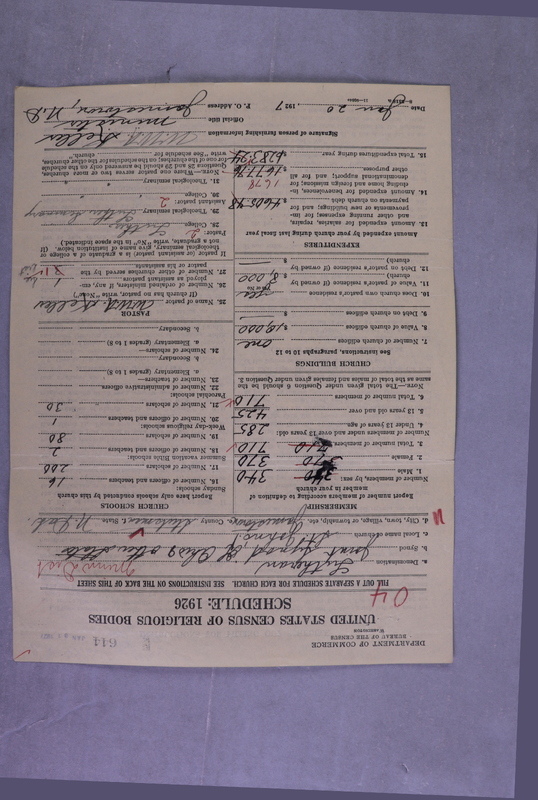 DEPARTMENT OF COMMERCE
BUREAU OF THE CENSUS
WASHINGTON
644
UNITED STATES CENSUS OF RELIGIOUS BODIES
SCHEDULE: 1926
04
FILL OUT A SEPARATE SCHEDULE FOR EACH CHURCH. SEE INSTRUCTIONS ON THE BACK OF THIS SHEET
a. Denomination Lutheran
b. Synod Joint Synod of Ohio & other States
c. Local name of church St Johns
d. City, town, village, or township, etc. Jamestown County Stutsman State N. Dak.
MEMBERSHIP
Report number of members according to definition of
member in your church
Number of members, by sex:
1. Male 340
2. Female 370
3. Total number of members 710
Number of members under and over 13 years old:
4. Under 13 years of age 285
5. 13 years old and over 425
6. Total number of members 710
Note.—The total given under Question 6 should be the
same as the total of males and females given under Question 3.
CHURCH BUILDINGS
See instructions, paragraphs 10 to 12
7. Number of church edifices one
8. Value of church edifices $
9. Debt on church edifices $
10. Does church own pastor's residence yes
(Yes or No)
11. Value of pastor's residence (if owned by
church) $ 8,000
12. Debt on pastor's residence (if owned by
church) $
EXPENDITURES
Amount expended by your church during last fiscal year
13. Amount expended for salaries, repairs,
and other running expenses; for improvements or new buildings; and for
payments on church debt $ 4605.48
14. Amount expended for benevolences, including home and foreign missions; for
denominational support, and for all
other purposes 1677.76
15. Total expenditures during year $
CHURCH SCHOOLS
Report here only schools conducted by this church
Sunday schools:
16. Number of officers and teachers 16
17. Number of scholars 200
Summer vacation Bible schools:
18. Number of officers and teachers 2
19. Number of scholars 80
Week-day religious schools:
20. Number of officers and teachers 1
21. Number of scholars 30
Parochial schools:
22. Number of administrative officers
23. Number of teachers
24. Number of scholars—
a. Elementary (grades 1 to 8)
b. Secondary
PASTOR
25. Name of pastor
(If church has no pastor, write "No")
26. Number of ordained ministers, if any, employed as assistant pastors
27. Number of other churches served by the
pastor or his assistants
If pastor (or assistant pastor) is a graduate of a college or
theological seminary, give name of institution below. (If
not a graduate, write "No" in the space indicated.)
Pastor:
28. College
29. Theological seminary
Assistant pastor:
30. College
31. Theological seminary
Signature of person furnishing information
Official title minister
Date Jan 20, 1927 P. O. Address Jamestown, N. D.